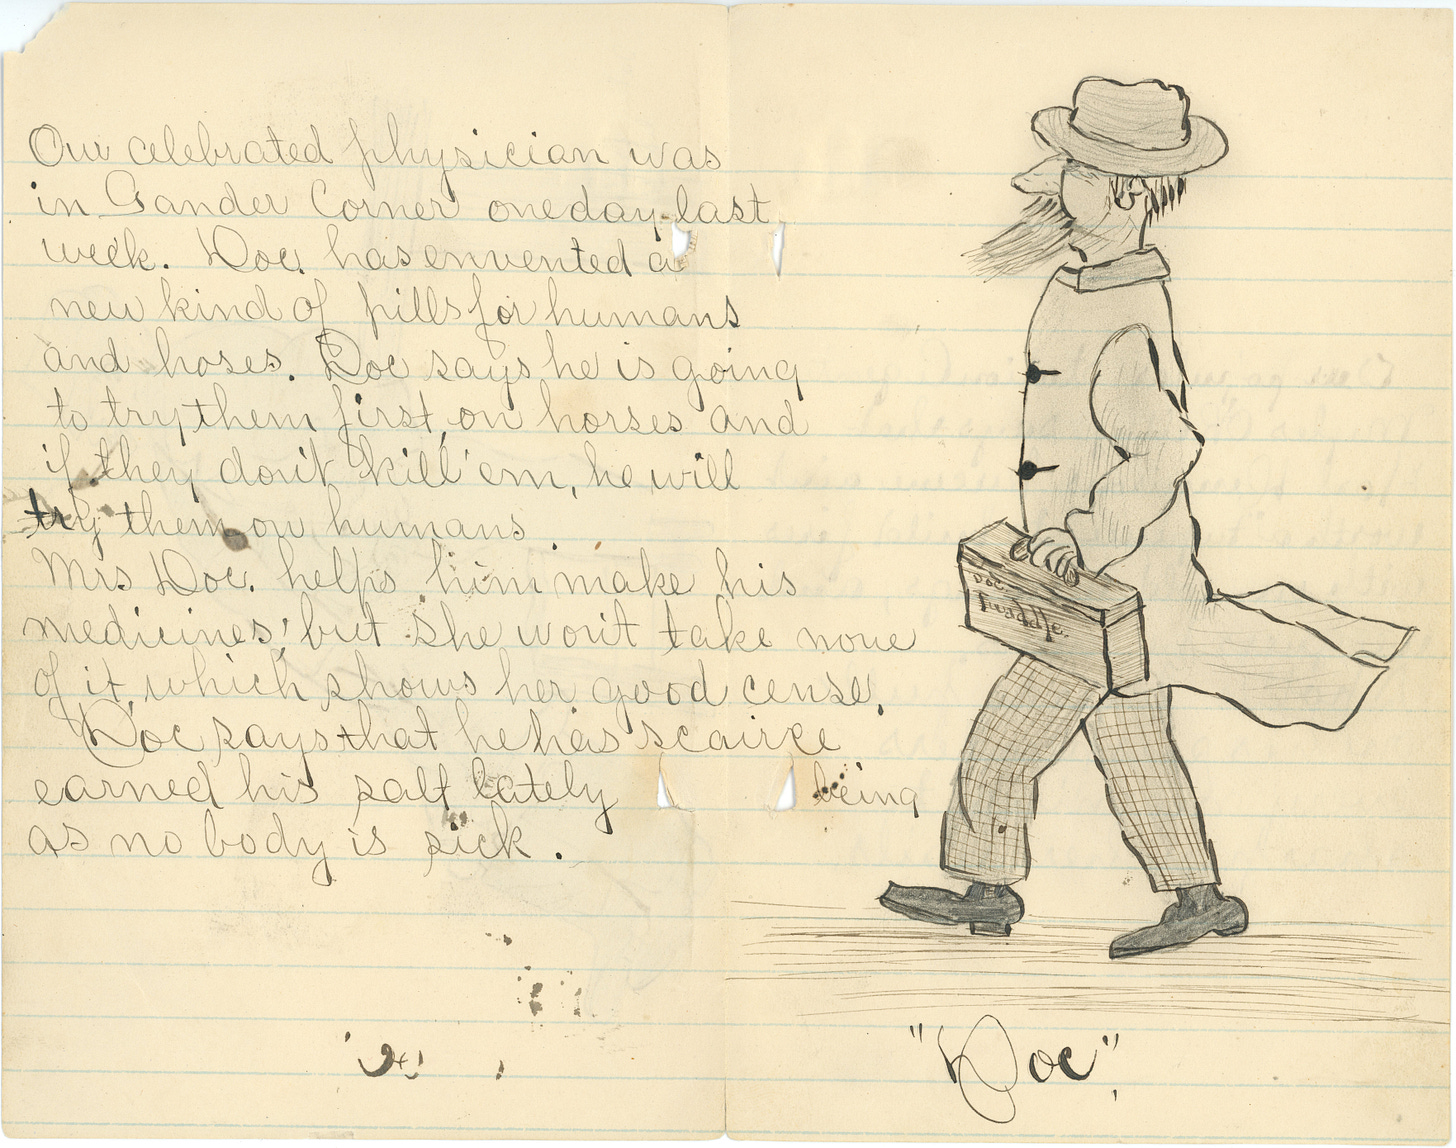 Our celebrated physician was
in Gander Corner one day last
week. Doc. has envented a
new kind of pills for humans
and hoses. Doc says he is going
to try them first, on horses and
if they don't kill 'em, he will
try them on humans
Mrs Doc. helps him make his
medicines, but she won't take none
of it, which shows her good cense.
Doc says that he has scairce
earned his salt lately being
as no body is sick.
Doc
Twaddle.
"Doc",